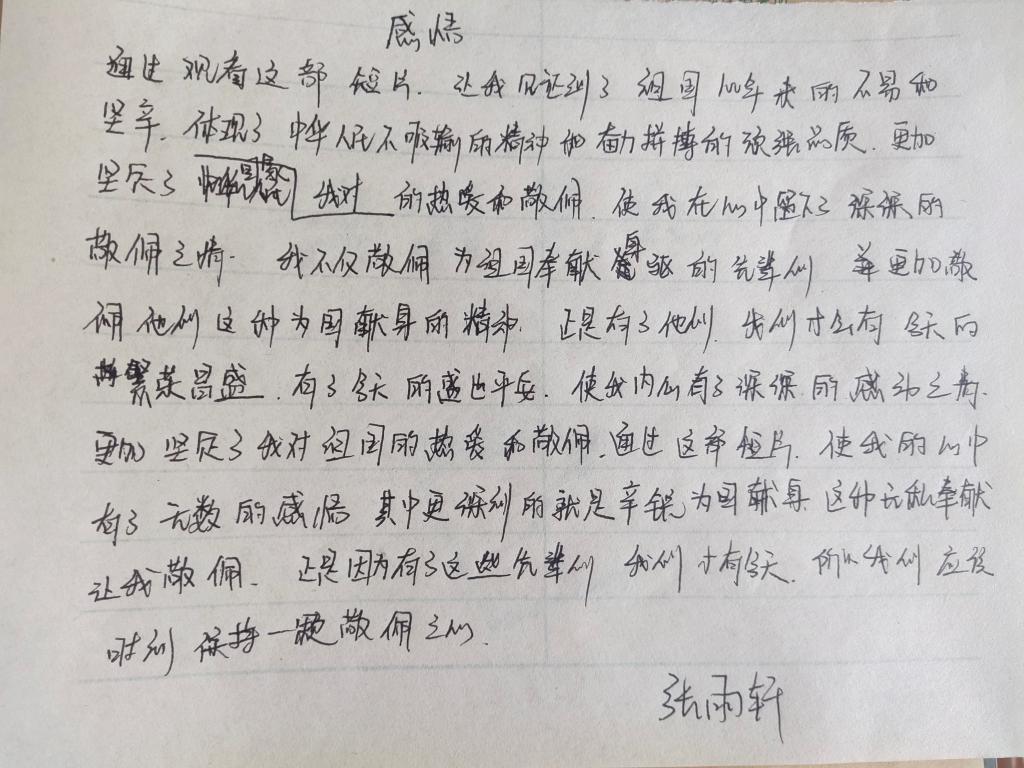 感悟
通过观看这部短片.让我见证到了祖国100年来的不易和
坚辛.体现了中华人民不服输的精神和奋力拼搏的顽强品质.更加
坚定了我对的热爱和敬佩.使我在心中留下了深深的
敬佩之情.我不仅敬佩为祖国奉献身躯的先辈们 并更加敬
佩他们这种为国献身的精神.正是有了他们.我们才会有今天的
繁荣昌盛.有了今天的盛世平安.使我内心有了深深的感动之情.
更加坚定了我对祖国的热爱和敬佩.通过这部短片.使我的心中
有了无数的感悟 其中更深刻的就是辛锐为国献身 这种无私奉献
让我敬佩.正是因为有了这些先辈们 我们才有今天.所以我们应该
时刻保持一颗敬佩之心.
张雨轩